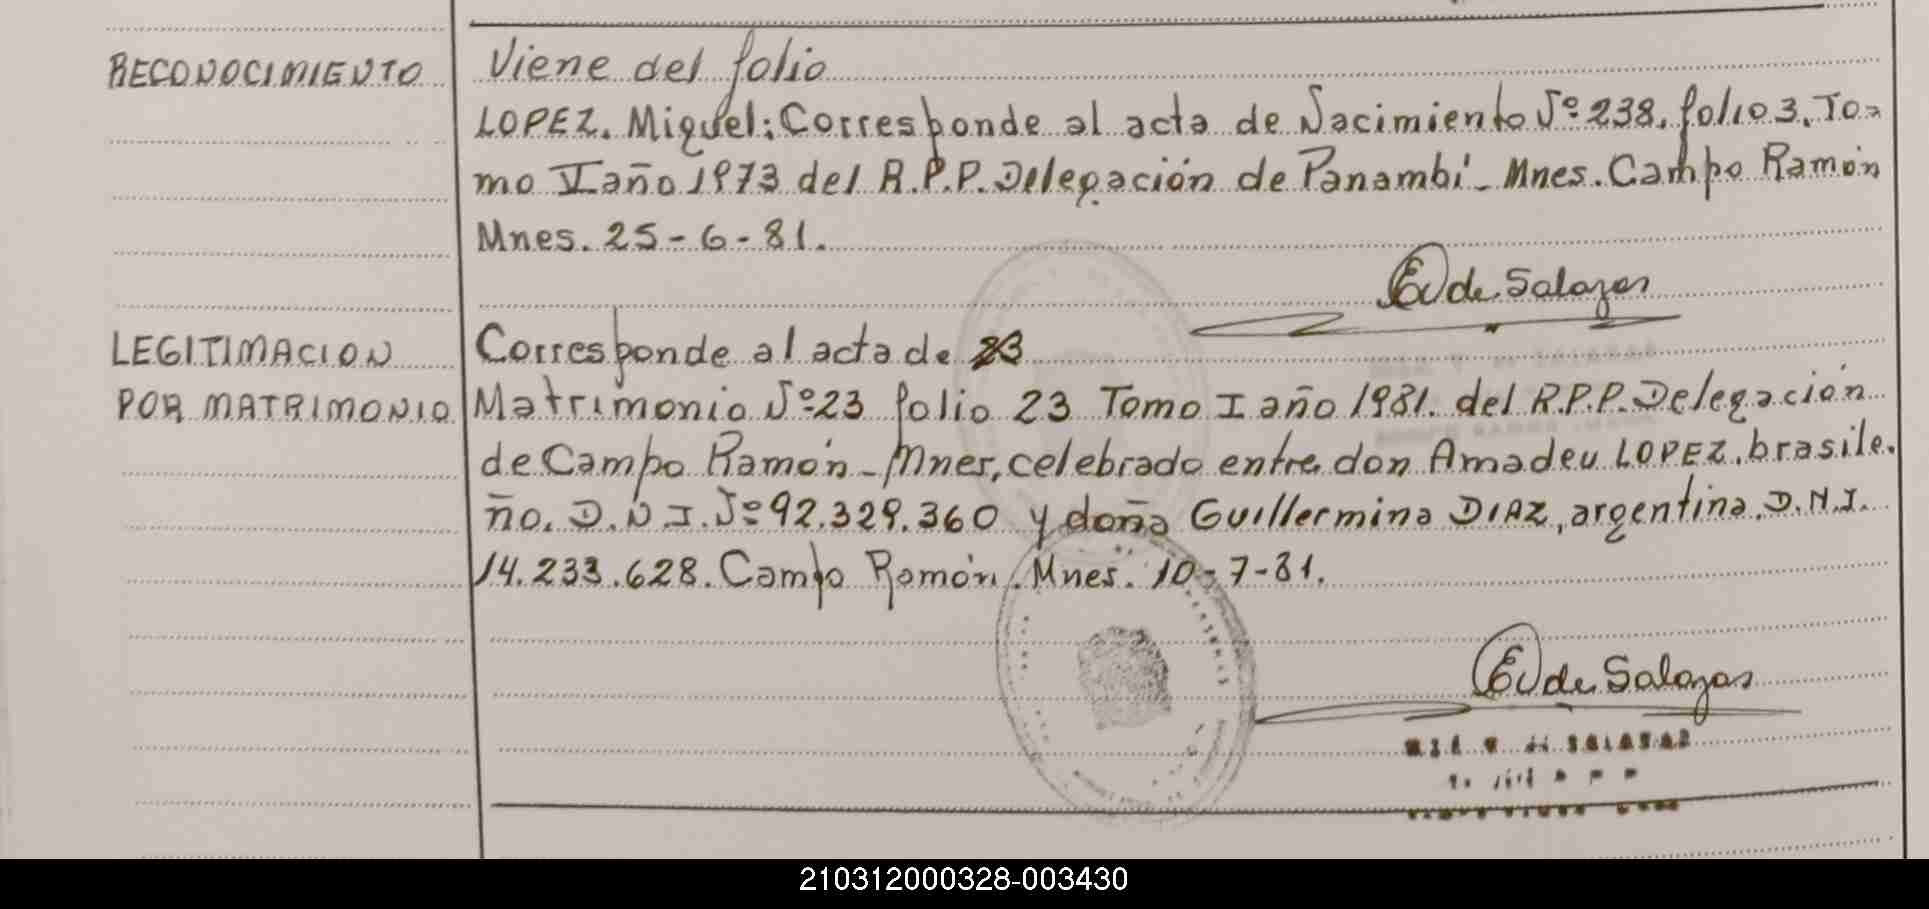 RECONOCIMIENTO
Viene del folio
LOPEZ. Miguel: Corresponde al acta de Nacimiento Nº 238. folio 3. To=
mo II año 1973 del R.P.P. Delegación de Panambí - Mnes. Campo Ramón
Mnes. 25-6-81.
E V de Salazar
LEGITIMACION
POR MATRIMONIO
Corresponde al acta de 23
Matrimonio Nº 23 folio 23 Tomo I año 1981. del R.P.P. Delegación
de Campo Ramón - Mnes, celebrado entre don Amadeu LOPEZ, brasile.
ño. D.N.I. Nº 92.329.360 y doña Guillermina DIAZ, argentina, D.N.I.
14.233.628. Campo Ramón. Mnes. 10-7-81.
E V de Salazar
SALAZAR
210312000328-003430